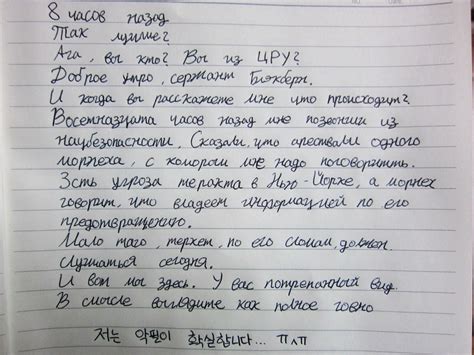 8 часов назад
Так лучше?
Ага, вы кто? Вы из ЦРУ?
Доброе утро, сержант Блэкберн.
И когда вы расскажете мне что происходит?
Восемнадцата часов назад мне позвонии из
нацбезопасности, Сказали, что арествали одного
морпеха, с которым мне надо поговорить.
Эсть угроза теракта в Нью-Йорке, а морпех
говорит, что владеет информацией по его
предотвращению.
Мало таго, теркет, по его словам, должен
случаться сегодня.
И вот мы здесь. У вас потрепанный вид.
В смысле выглядите как полное говно
저는 악필이 확실합니다... ㅠㅅㅠ